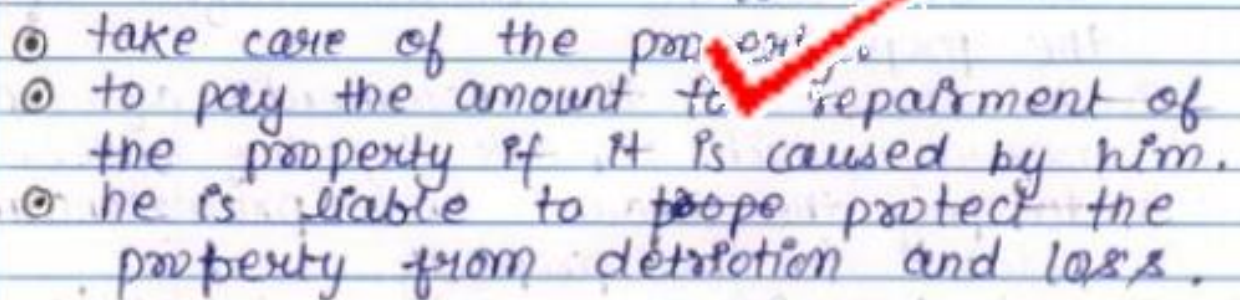 take care of the
to pay the amount to repairment of
the property if it is caused by him.
he is liable to prope protect the
property from detriotion and loss.